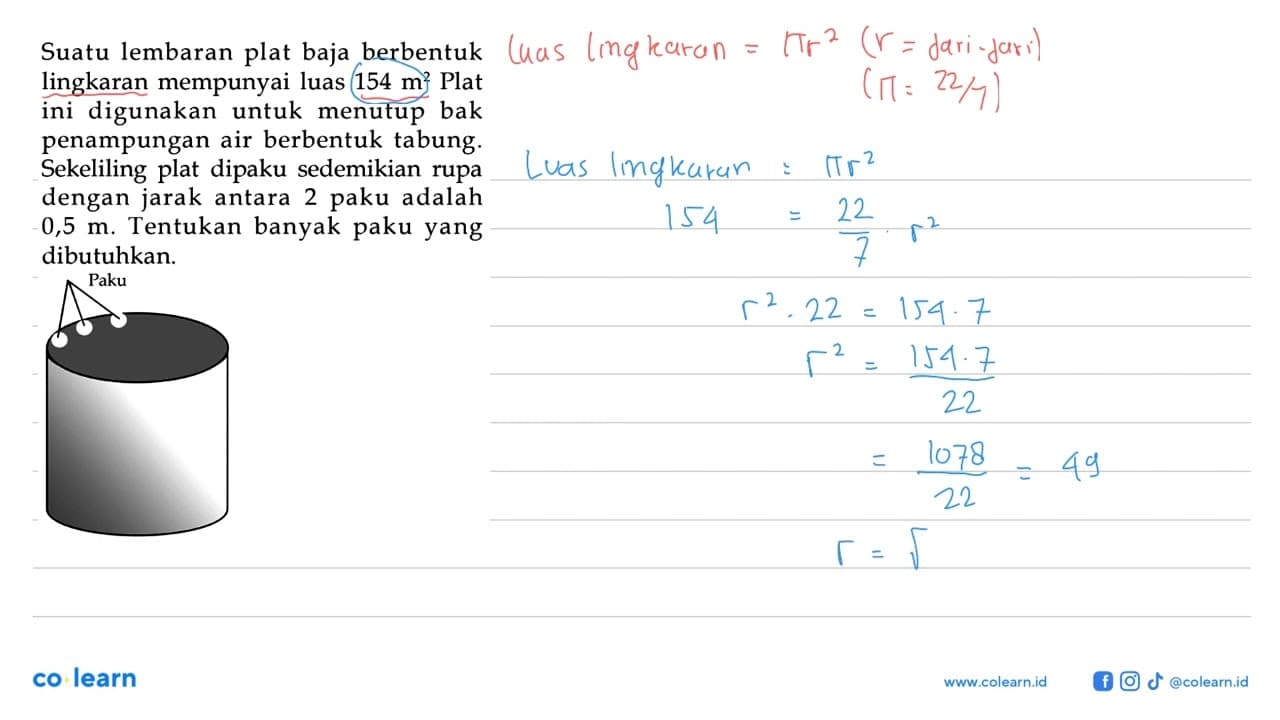 Suatu lembaran plat baja berbentuk
lingkaran mempunyai luas 154 m² Plat
ini digunakan untuk menutup bak
penampungan air berbentuk tabung.
Sekeliling plat dipaku sedemikian rupa
dengan jarak antara 2 paku adalah
0,5 m. Tentukan banyak paku yang
dibutuhkan.
Paku
Luas lingkaran = πr² (r = jari-jari)
(π = 22/7)
Luas lingkaran = πr²
154 = 22/7 . r²
r² . 22 = 154 . 7
r² = 154 . 7
22
= 1078 = 49
22
r = √
co learn
www.colearn.id
@colearn.id